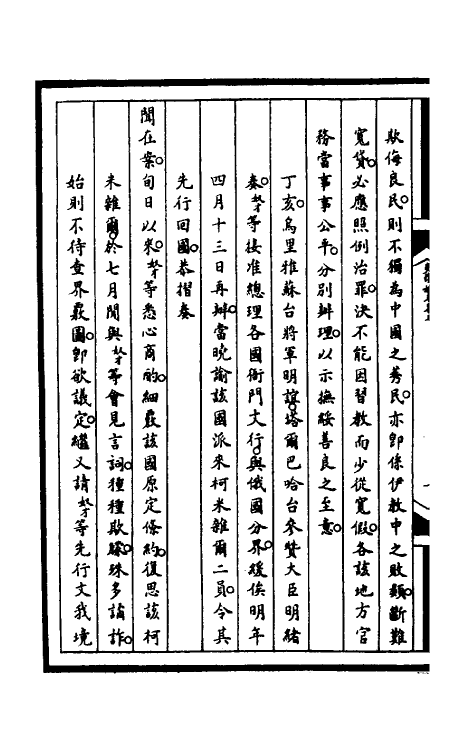 欺侮良民。則不獨為中國之莠民。亦卽係伊教中之敗類。斷難
寬貸。必應照例治罪。決不能因習教而少從寬假。各該地方官
務當事事公平。分別辦理。以示撫綏善良之至意。
丁亥。烏里雅蘇台將軍明誼。塔爾巴哈台參贊大臣明緒
奏。奴才等接准總理各國衙門文行。與俄國分界。緩俟明年
四月十三日再辦。當曉諭該國派來柯米雜爾二員。令其
先行回國。恭摺奏
聞在案。旬日以來。奴才等悉心商酌。細覈該國原定條約。復思該柯
米雜爾。於七月閒與奴才等會見言詞。種種欺矇。殊多譎詐。
始則不待查界覈圖。卽欲議定。繼又請奴才等先行文我境